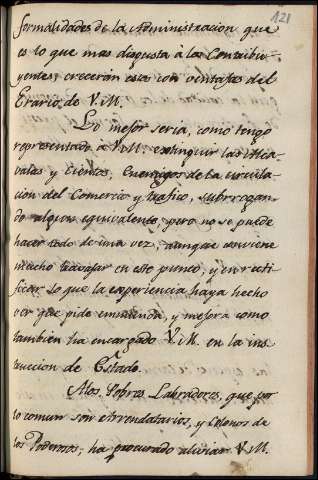 121
formalidades de la Administracion que
es lo que mas disgusta à los Contribu-
yentes; creceran estas con ventajas del
Erario de V.M.
Lo mejor seria, como tengo
representado à V.M. extinguir las Alca-
valas y Cientos, Enemigos de la circula-
cion del Comercio y trafico, subrrogan-
do algun equivalente, pero no se puede
hacer todo de una vez, aunque conviene
mucho travajar en este punto, y en recti-
ficar lo que la experiencia haya hecho
ver que pide enmienda, y mejora como
tambien ha encargado V.M. en la ins-
truccion de Estado.
A los Pobres Labradores, que por
lo comun son Arrendatarios, y Colonos de
los Poderosos, ha procurado aliviar V.M.